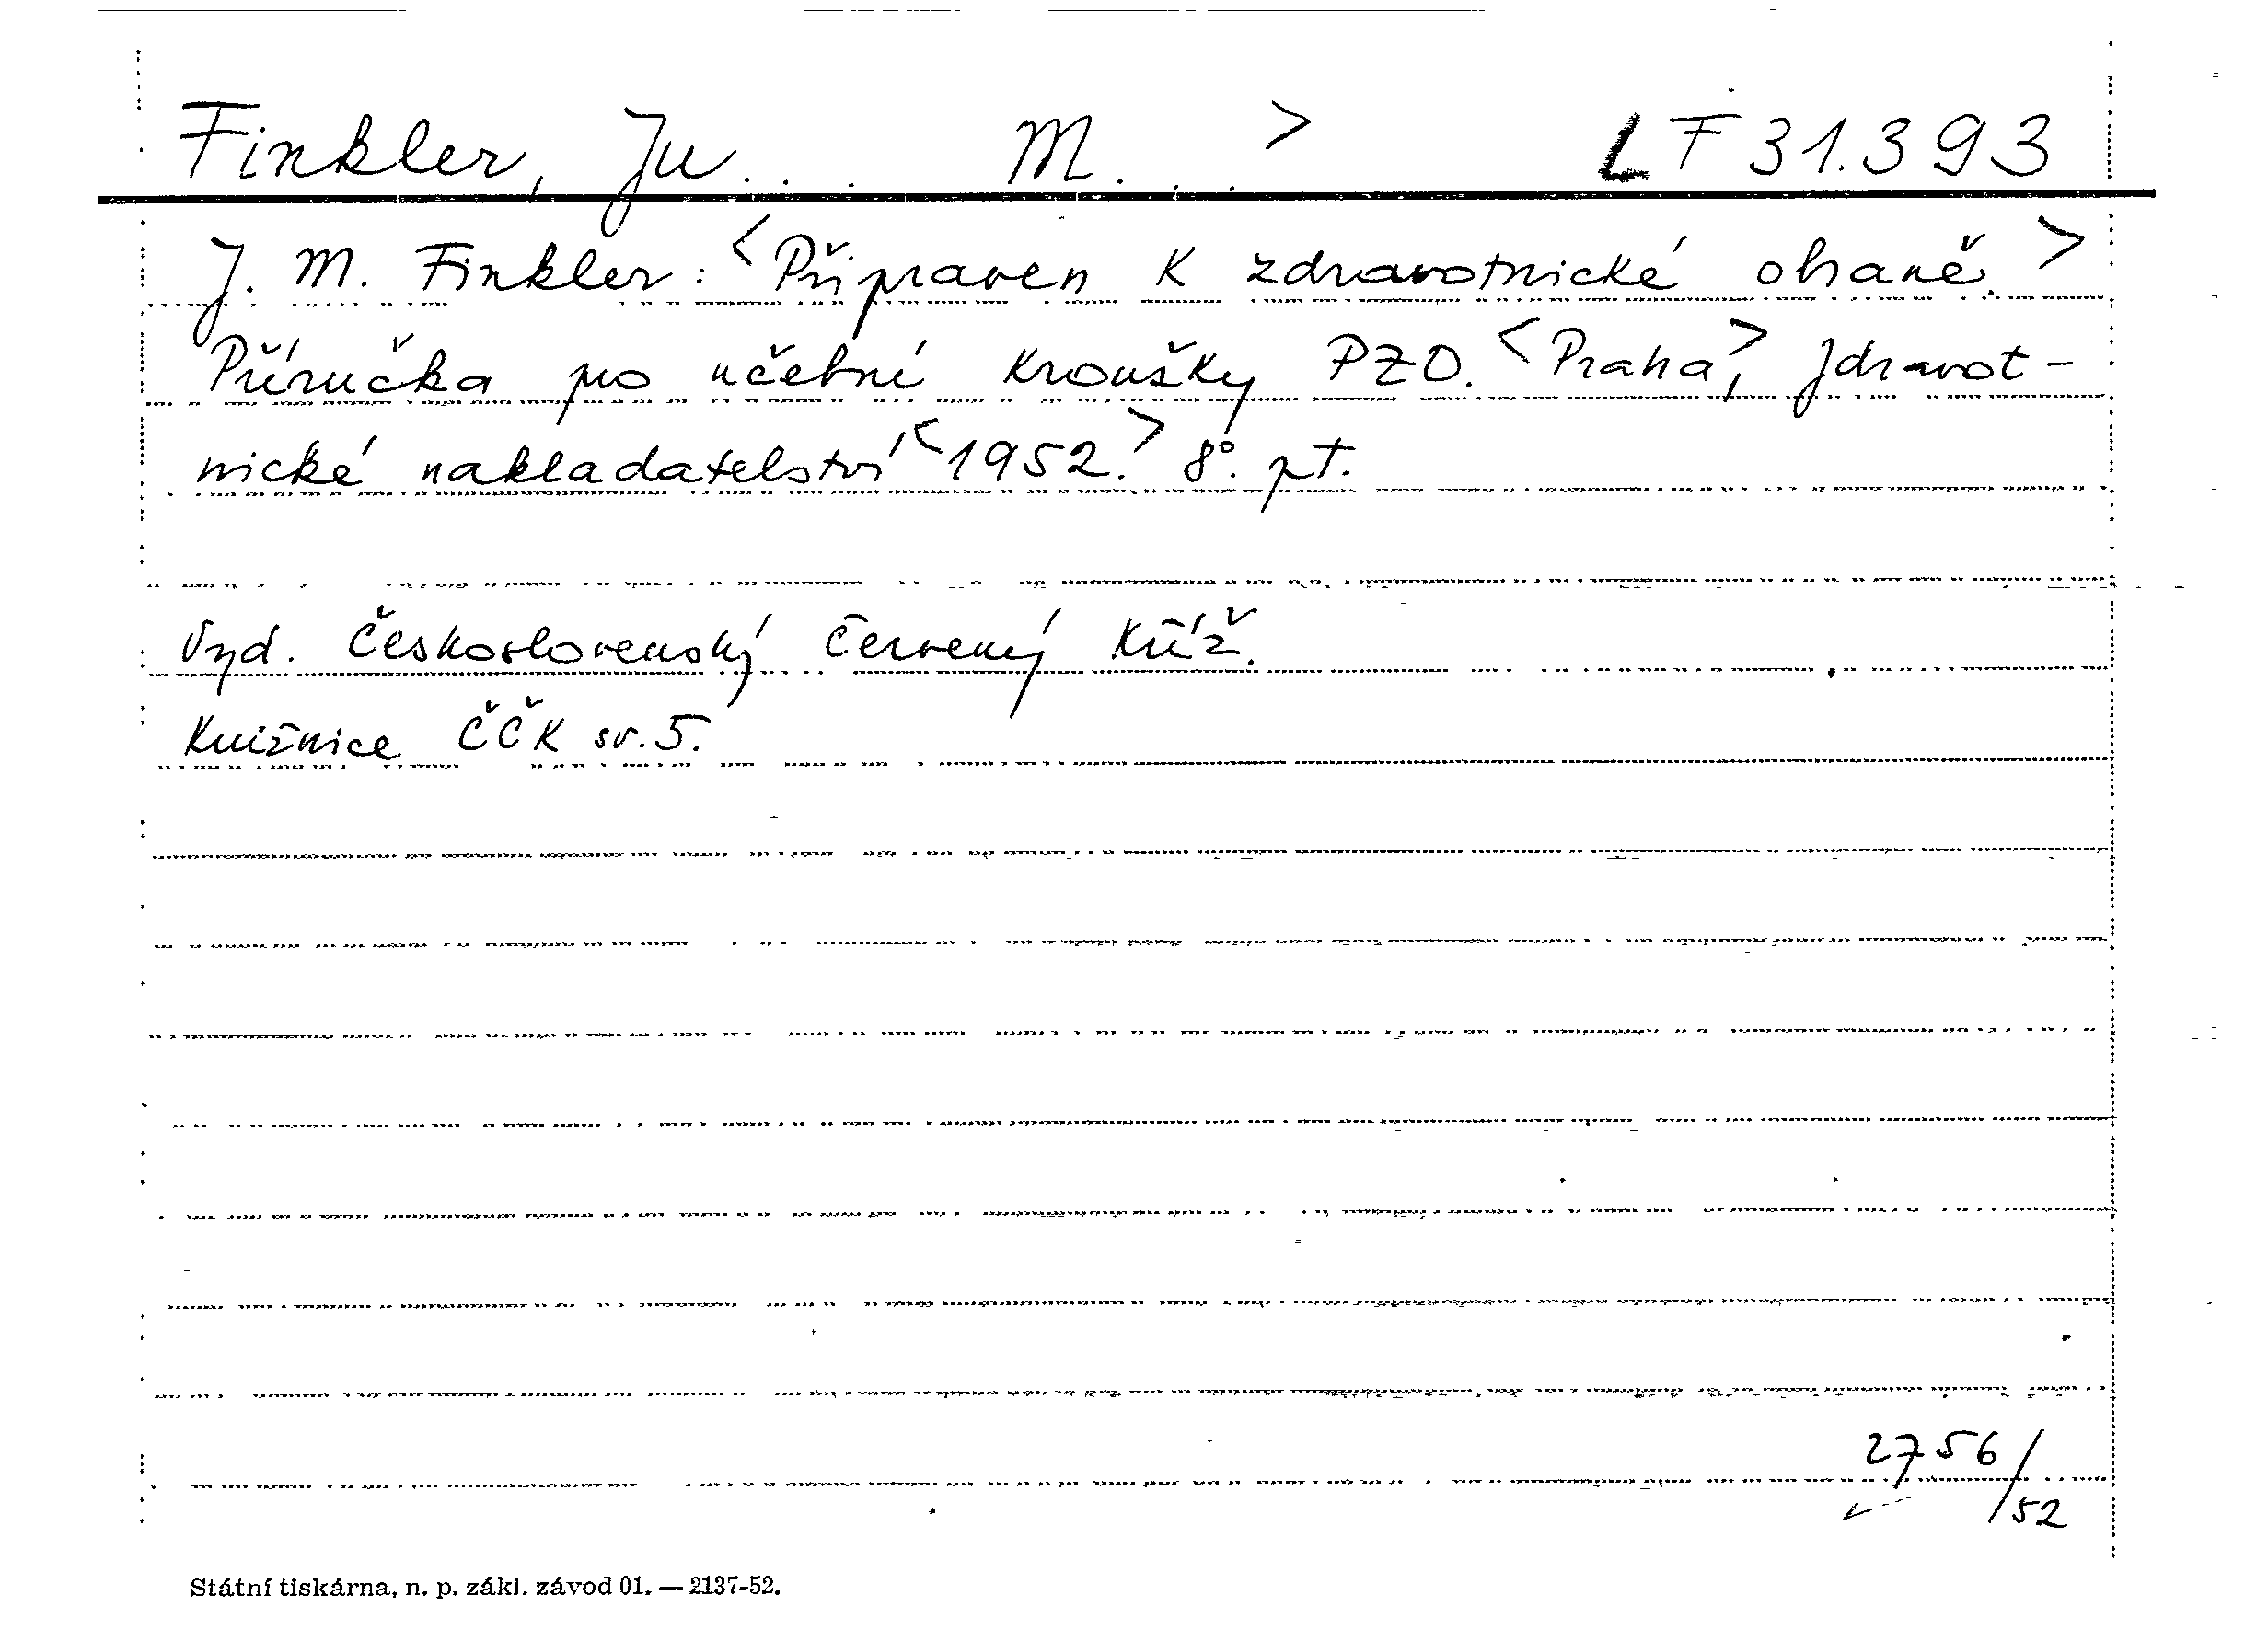 Finkler, Ju... M...> LF 31.393
J. M. Finkler: <Připraven k zdravotnické obraně.>
Příručka pro učební kroužky PZO. <Praha>, Zdravot-
nické nakladatelství <1952.> 8°. pt.
Vyd. Československý Červený Kříž.
Knižnice ČČK sv. 5.
2756/
/52
Státní tiskárna, n. p. zákl. závod 01. — 2137-52.